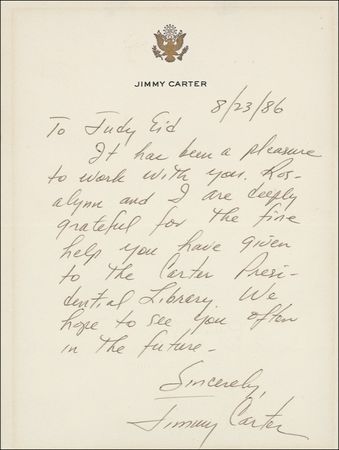 JIMMY CARTER
8/23/86
To Judy Eid
It has been a pleasure
to work with you. Ros-
alynn and I are deeply
grateful for the fine
help you have given
to the Carter Presi-
dential Library. We
hope to see you often
in the future-
Sincerely,
Jimmy Carter